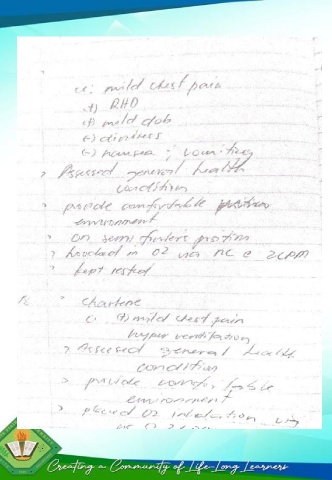 c: mild chest pain
(+) RHD
(+) mild dob
(-) dizziness
(-) nausea ; vomiting
> Assessed general health
condition
> provide comfortable
environment
> on semi fowlers position
> hooked in O2 via NC @ 2LPM
> kept rested
> Charlene
c: (+) mild chest pain
hyper ventilation
> Assessed general health
condition
> provide comfortable
environment
> placed O2 inhalation via
Creating a Community of Life-Long Learners